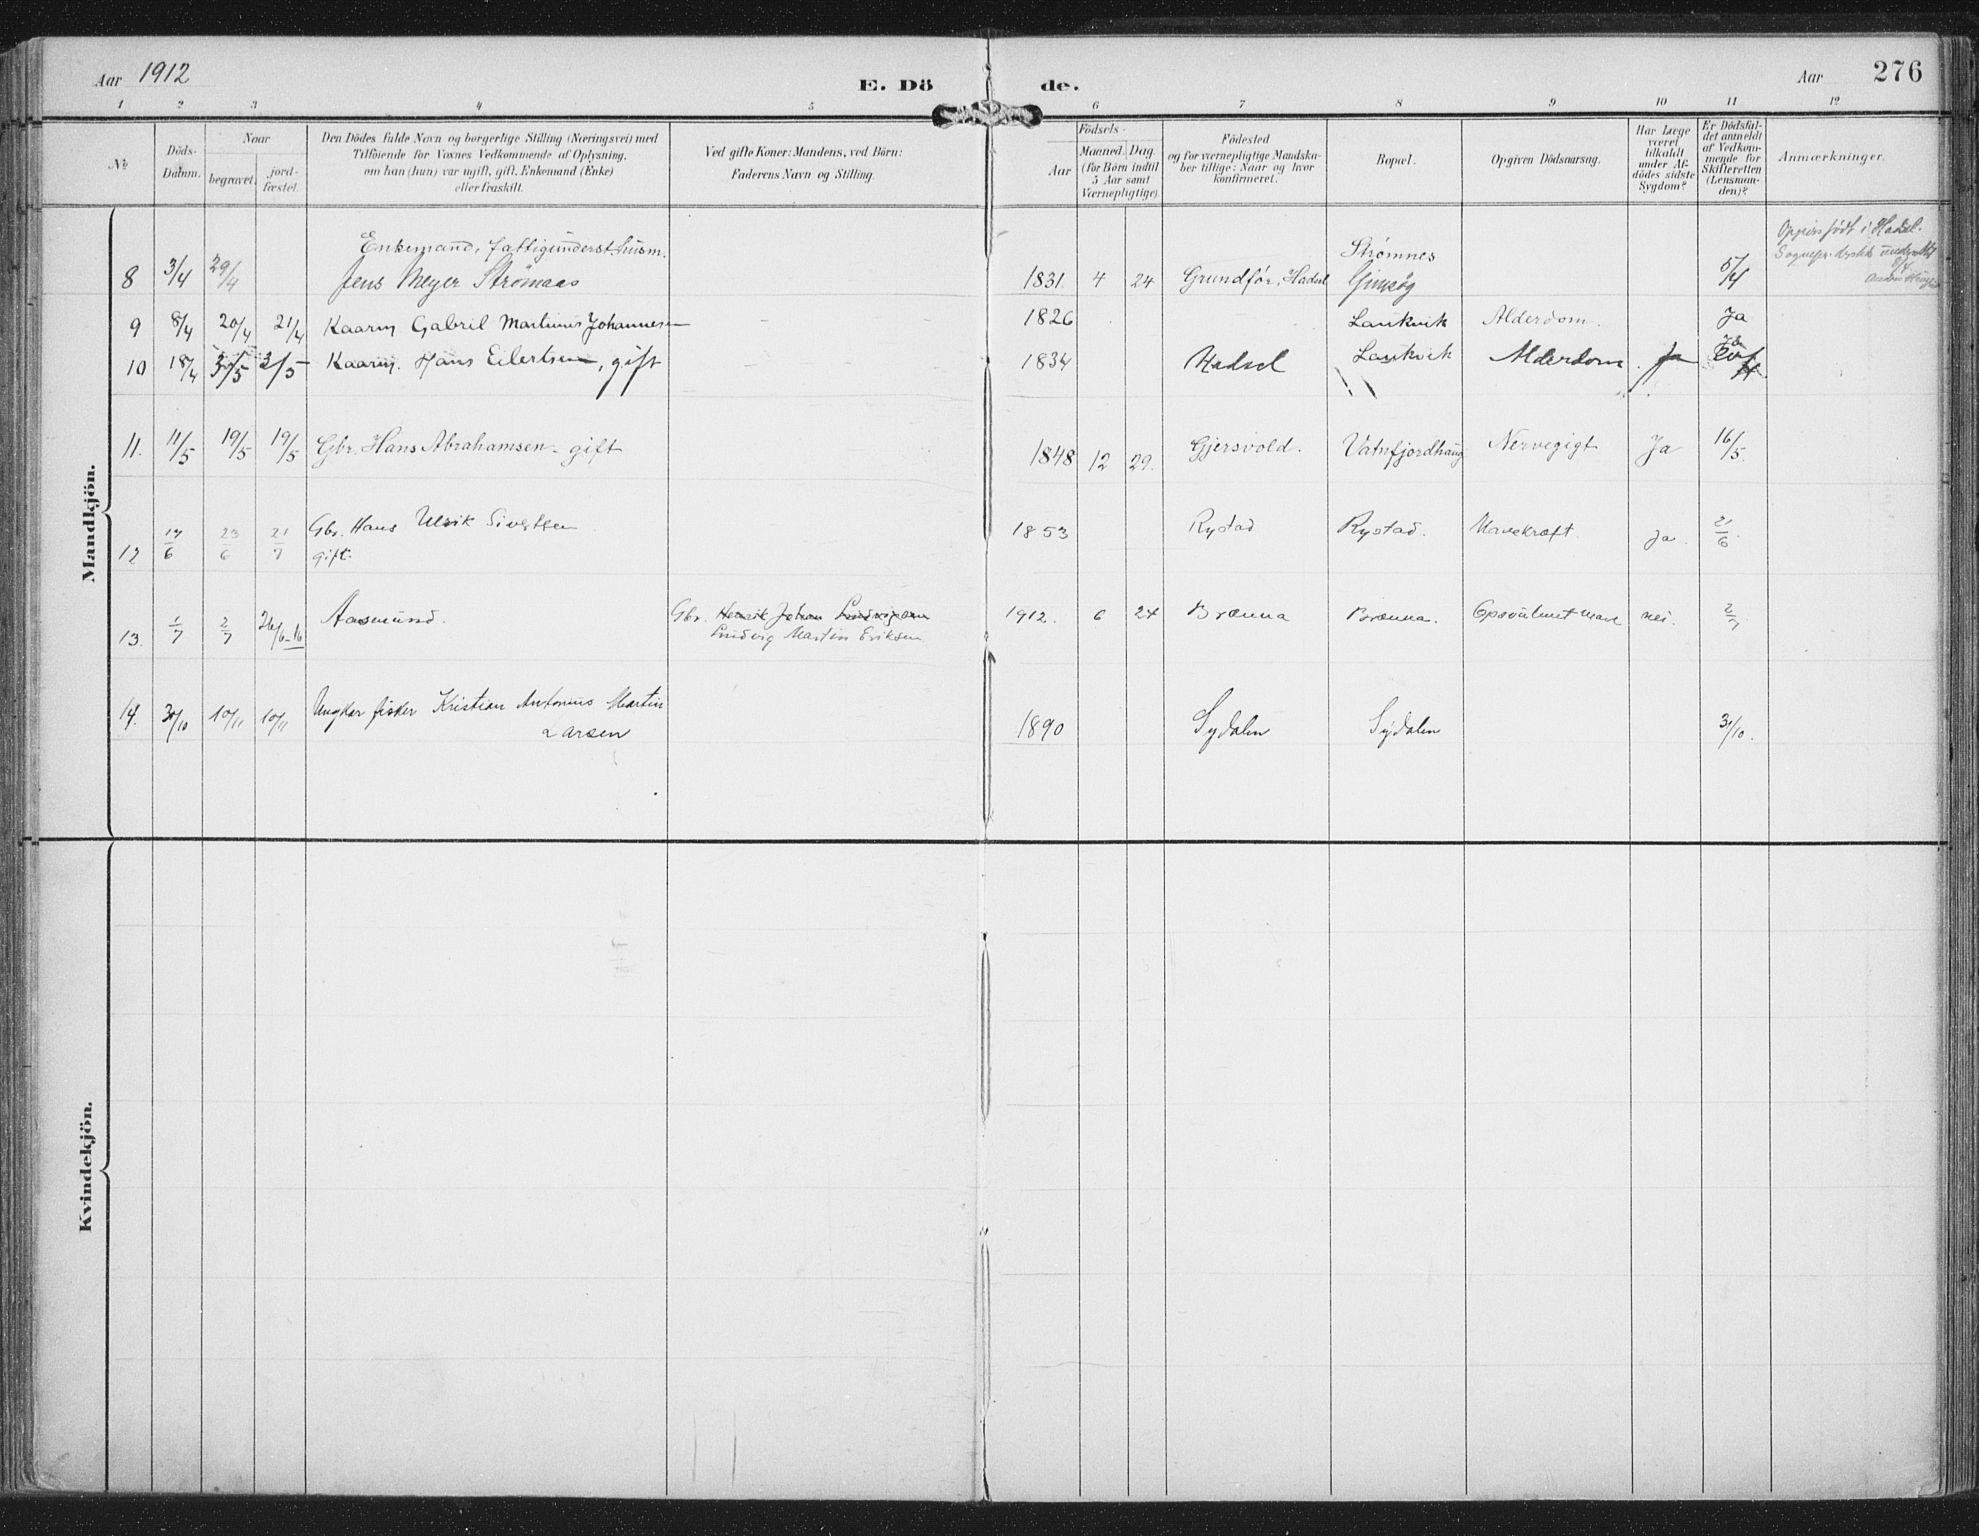 Aar 1912
E. Dö de.
Aar 276
1 2 3 4 5 6 7 8 9 10 11 12
No
Döds-Datum.
Naar
begravet.
jord-fæstet.
Den Dödes fulde Navn og borgerlige Stilling (Næringsvei) med
Tilföiende for Voxnes Vedkommende af Oplysning,
om han (hun) var ugift, gift, Enkemand (Enke)
eller fraskilt.
Ved gifte Koner: Mandens, ved Börn:
Faderens Navn og Stilling.
Födsels-
Aar
Maaned. Dag.
(for Börn indtil
5 Aar samt
Værnepligtige).
Födested
og for værnepligtige Mandska-
ber tillige: Naar og hvor
konfirmeret.
Bopæl.
Opgiven Dödsaarsag.
Har Læge
været
tilkaldt
under Af-
dödes sidste
Sygdom?
Er Dödsfal-
det anmeldt
af Vedkom-
mende for
Skifteretten
(Lensman-
den)?
Anmærkninger.
Mandkjön.
Enkemand, fattigunderst. husm. Strømnes Opgives født i Hadsel.
8 3/4 29/4 Jens Meyer Strømaas 1831. 4 24 Grundför, Hadsel Gimsøy 5/4
9 8/4 20/4 21/4 Kaarm Gabril Martinus Johannesen 1826 Laukvik Alderdom. Ja
10 18/4 3/5 3/5 Kaarm. Hans Eilertsen, gift 1834 Hadsel Laukvik Alderdom Ja
11. 11/5 19/5 19/5 Gbr. Hans Abrahamsen - gift 1848 12 29. Gjersvold. Vatnfjordhaug Nervegigt Ja 16/5.
12 17/6 23/6 21/7 Gbr. Hans Ulrik Sivertsen 1853 Rystad Rystad. Mavekræft. ja. 21/6.
gift.
13. 1/7 2/7 26/6-16 Aasmund. Gbr. Henrik Johan Ludvigsen 1912. 6 24 Brænna Brænna. nei. 2/7
Ludvig Martin Eriksen
14. 30/10 10/11 10/11 Ungkar fisker Kristian Antonius Martin
Larsen 1890 Sydalen Sydalen 31/10.
Kvindekjön.